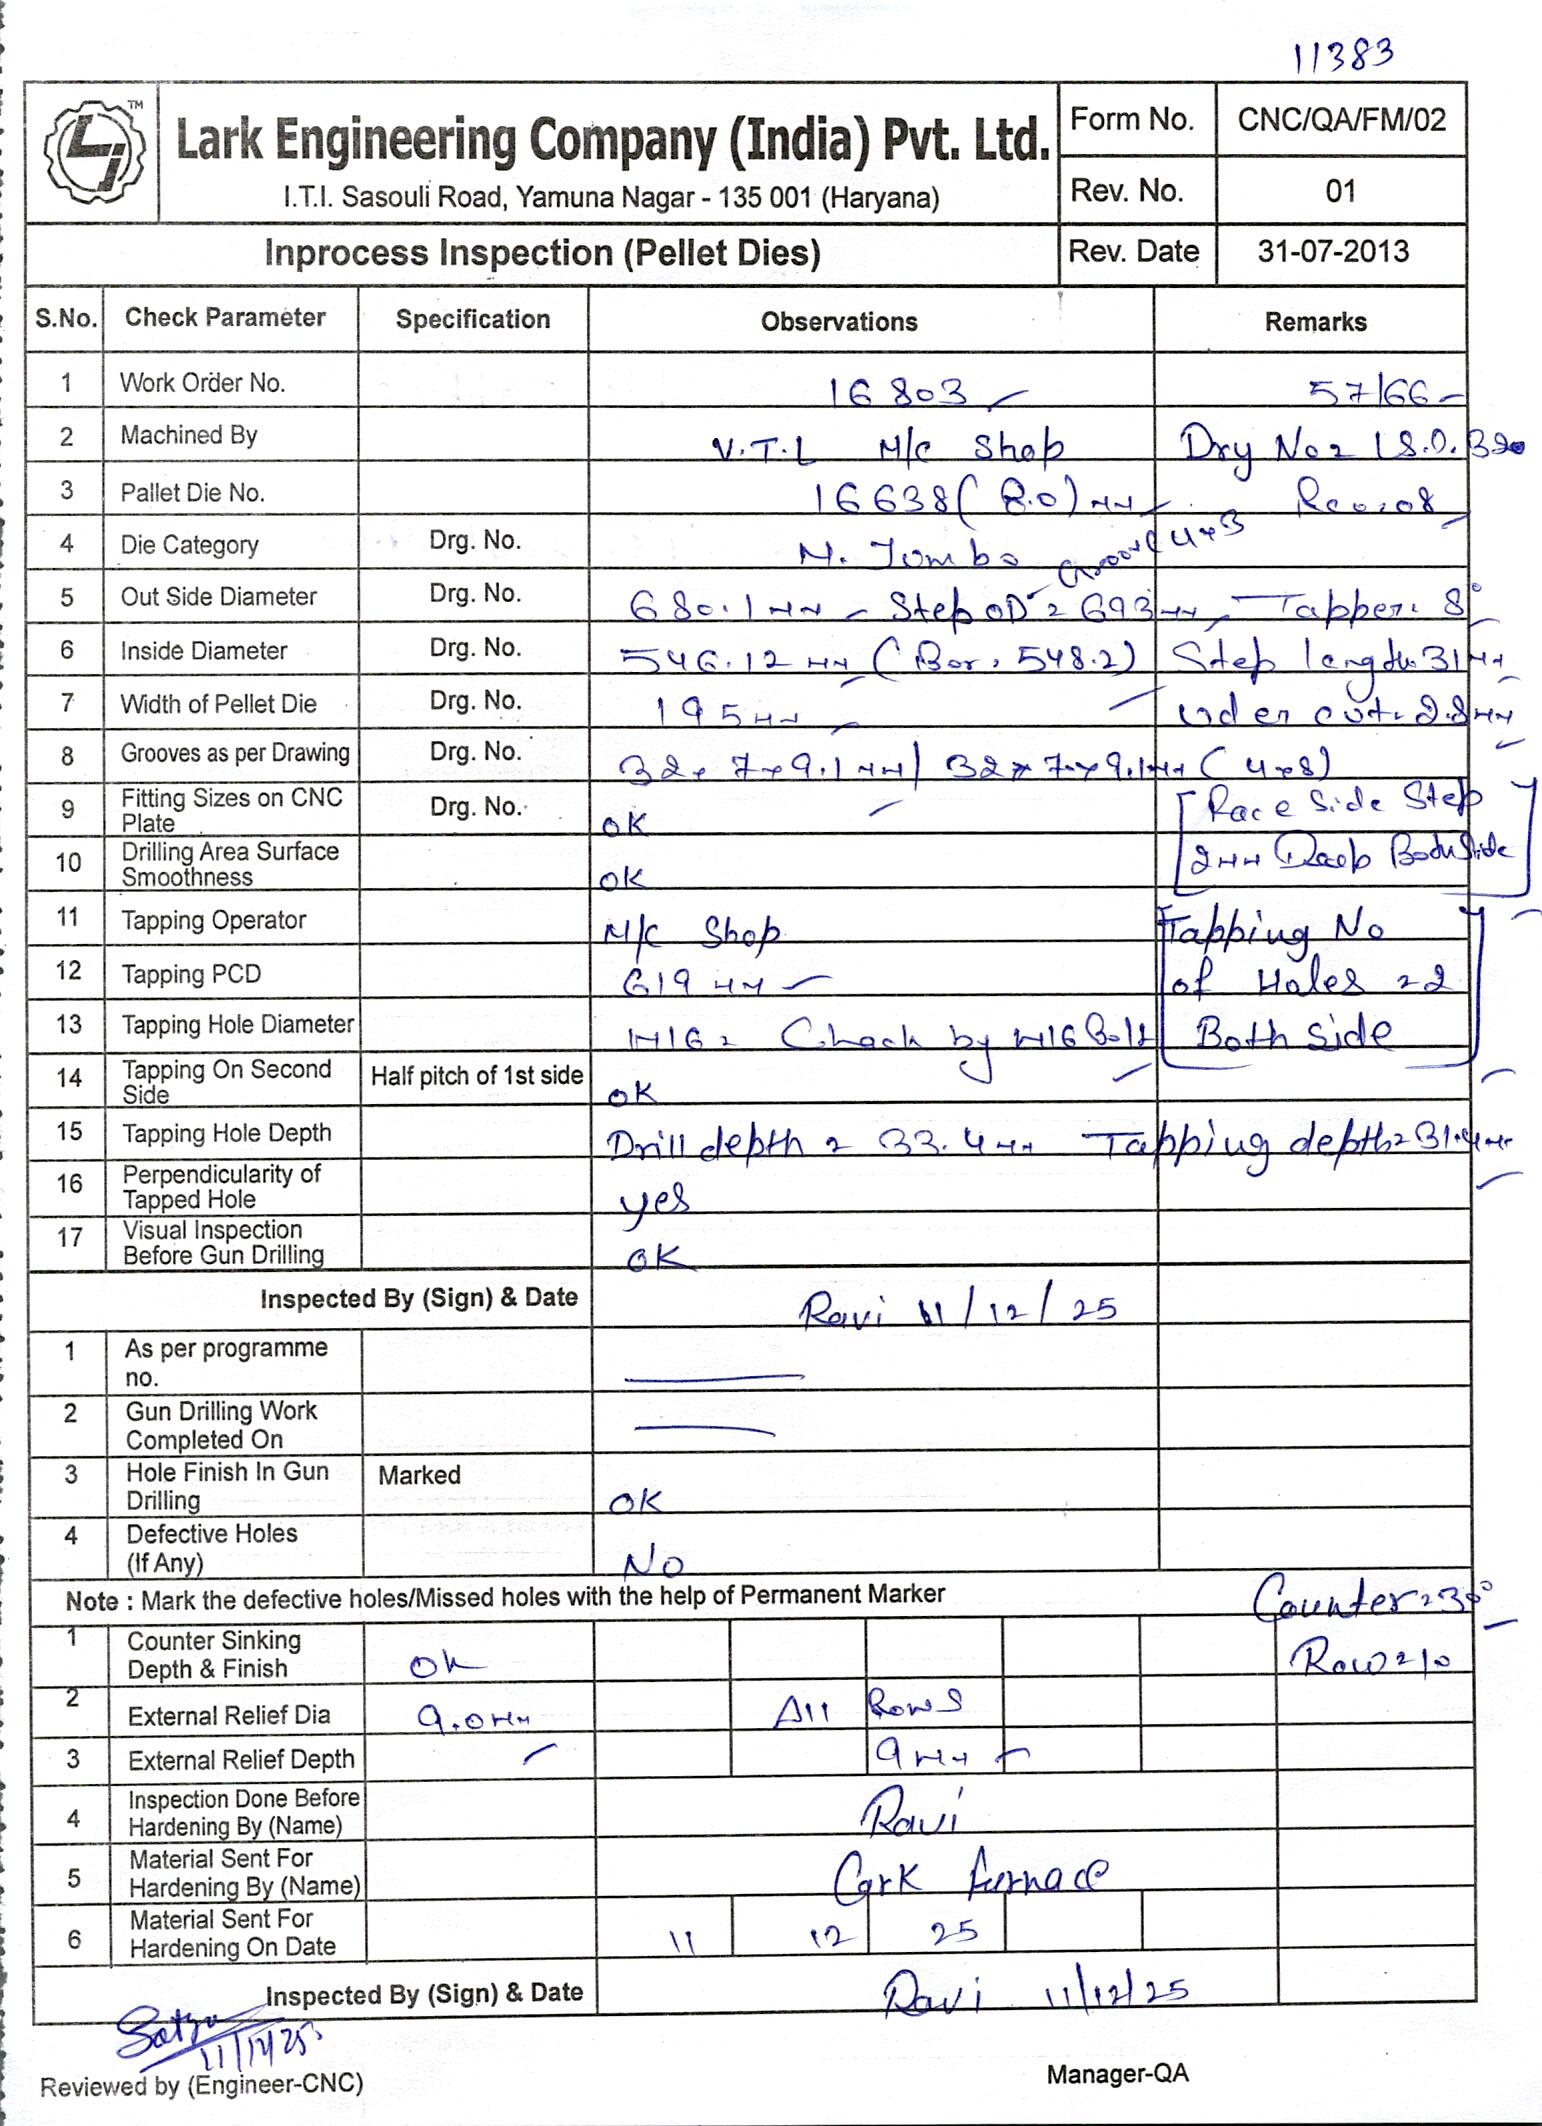 11383
TM
Lark Engineering Company (India) Pvt. Ltd.
I.T.I. Sasouli Road, Yamuna Nagar - 135 001 (Haryana)
Form No. CNC/QA/FM/02
Rev. No. 01
Inprocess Inspection (Pellet Dies) Rev. Date 31-07-2013
S.No. Check Parameter Specification Observations Remarks
1 Work Order No. 16803 57/66
2 Machined By V.T.L M/C Shop Dry No = I.S.O. 320
3 Pallet Die No. 16638 (8.0) mm Rev. 08
4 Die Category Drg. No. M. Jumbo Groove 4×3
5 Out Side Diameter Drg. No. 680.1 mm Step OD = 693 mm Tapper. 8°
6 Inside Diameter Drg. No. 546.12 mm (Bor. 548.2) Step length 31 mm
7 Width of Pellet Die Drg. No. 195 mm Uder cut. 2.8 mm
8 Grooves as per Drawing Drg. No. 32×7×9.1 mm / 32×7×9.1 mm (4×8)
9 Fitting Sizes on CNC Plate Drg. No. OK [Race Side Step
10 Drilling Area Surface Smoothness OK 2mm Deep Body Side]
11 Tapping Operator M/C Shop [Tapping No
12 Tapping PCD 619 mm of Holes = 2
13 Tapping Hole Diameter M16 = Check by M16 Bolt Both Side]
14 Tapping On Second Side Half pitch of 1st side OK
15 Tapping Hole Depth Drill depth = 33.4 mm Tapping depth = 31.4 mm
16 Perpendicularity of Tapped Hole yes
17 Visual Inspection Before Gun Drilling OK
Inspected By (Sign) & Date Ravi 11/12/25
1 As per programme no.
2 Gun Drilling Work Completed On
3 Hole Finish In Gun Drilling Marked OK
4 Defective Holes (If Any) No
Note : Mark the defective holes/Missed holes with the help of Permanent Marker Counter = 30°
1 Counter Sinking Depth & Finish OK Row = 10
2 External Relief Dia 9.0 mm All Rows
3 External Relief Depth 9 mm
4 Inspection Done Before Hardening By (Name) Ravi
5 Material Sent For Hardening By (Name) furnace
6 Material Sent For Hardening On Date 11 12 25
Inspected By (Sign) & Date Ravi 11/12/25
11/12/25
Reviewed by (Engineer-CNC) Manager-QA